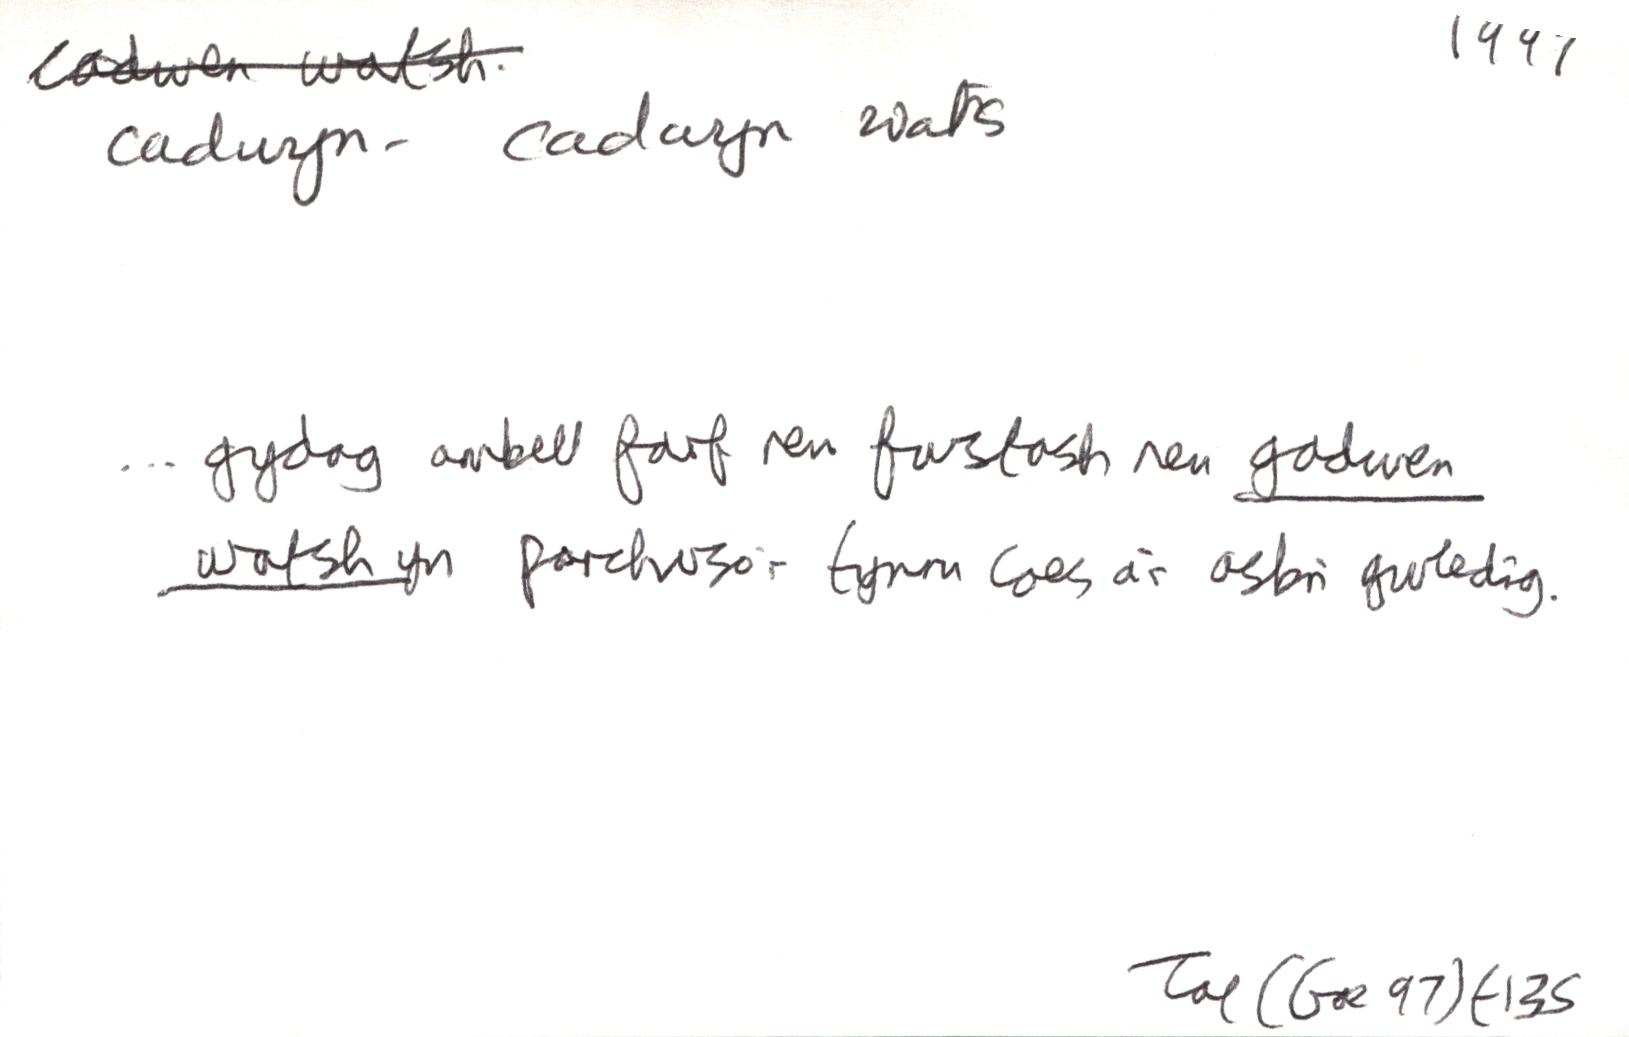 cadwen watsh.
1997
cadwyn- cadwyn wats
... gydag ambell farf neu fwstash neu gadwen
watsh yn parchuso'r tynnu coes a'r asbri gwledig.
Tal (Gor 97) t135